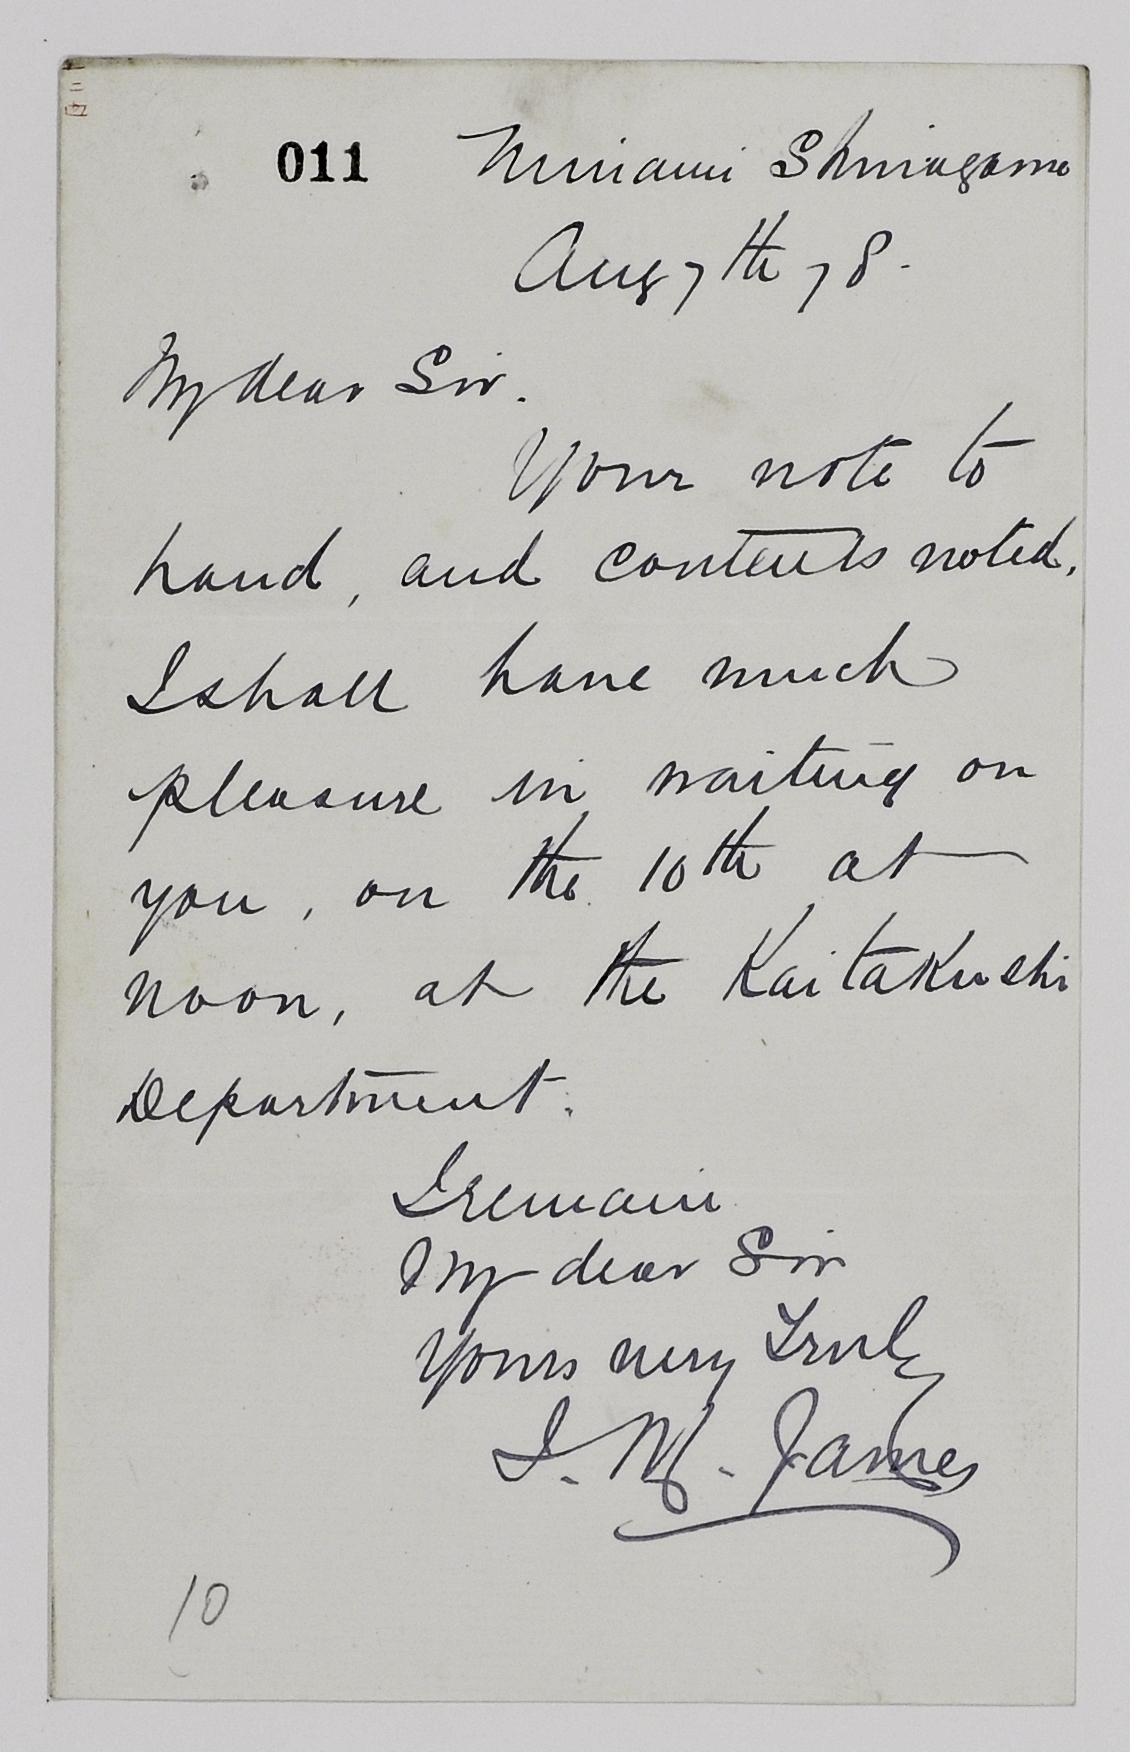 011 Minami Shinagawa
Aug 7th 78.
My dear Sir.
Your note to
hand, and contents noted.
I shall have much
pleasure in waiting on
you, on the 10th at
noon, at the Kaitakushi
Department.
I remain
My dear Sir
Yours very Truly
J. M. James
10